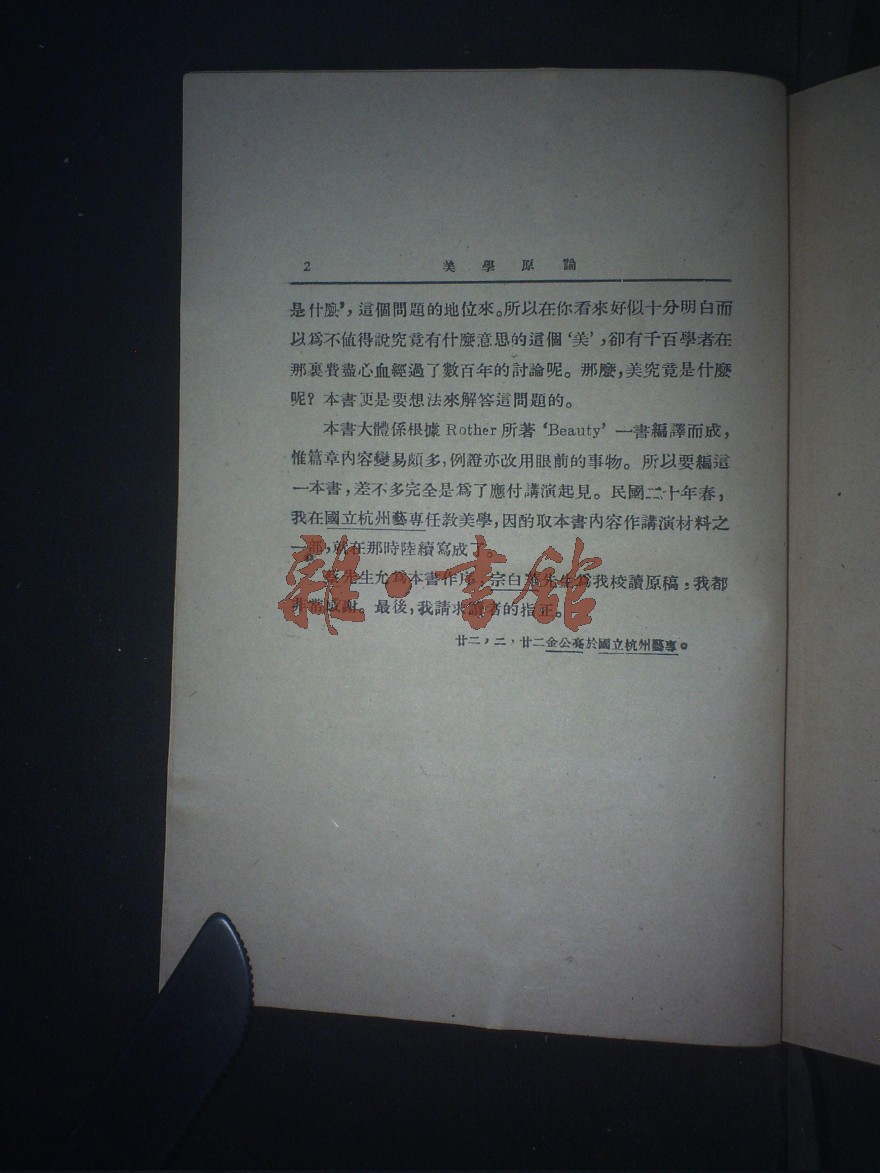 2 美學原論
是什麼’，這個問題的地位來。所以在你看來好似十分明白而
以爲不值得說究竟有什麼意思的這個‘美’，卻有千百學者在
那裏費盡心血經過了數百年的討論呢。那麼，美究竟是什麼
呢？本書便是要想法來解答這問題的。
本書大體係根據 Rother 所著‘Beauty’一書編譯而成，
惟篇章內容變易頗多，例證亦改用眼前的事物。所以要編這
一本書，差不多完全是爲了應付講演起見。民國二十年春，
我在國立杭州藝專任教美學，因酌取本書內容作講演材料之
一部，就在那時陸續寫成了。
蔡先生允爲本書作序，宗白華先生爲我校讀原稿，我都
非常感謝。最後，我請求讀者的指正。
廿二，二，廿二金公亮於國立杭州藝專。
雜·書館